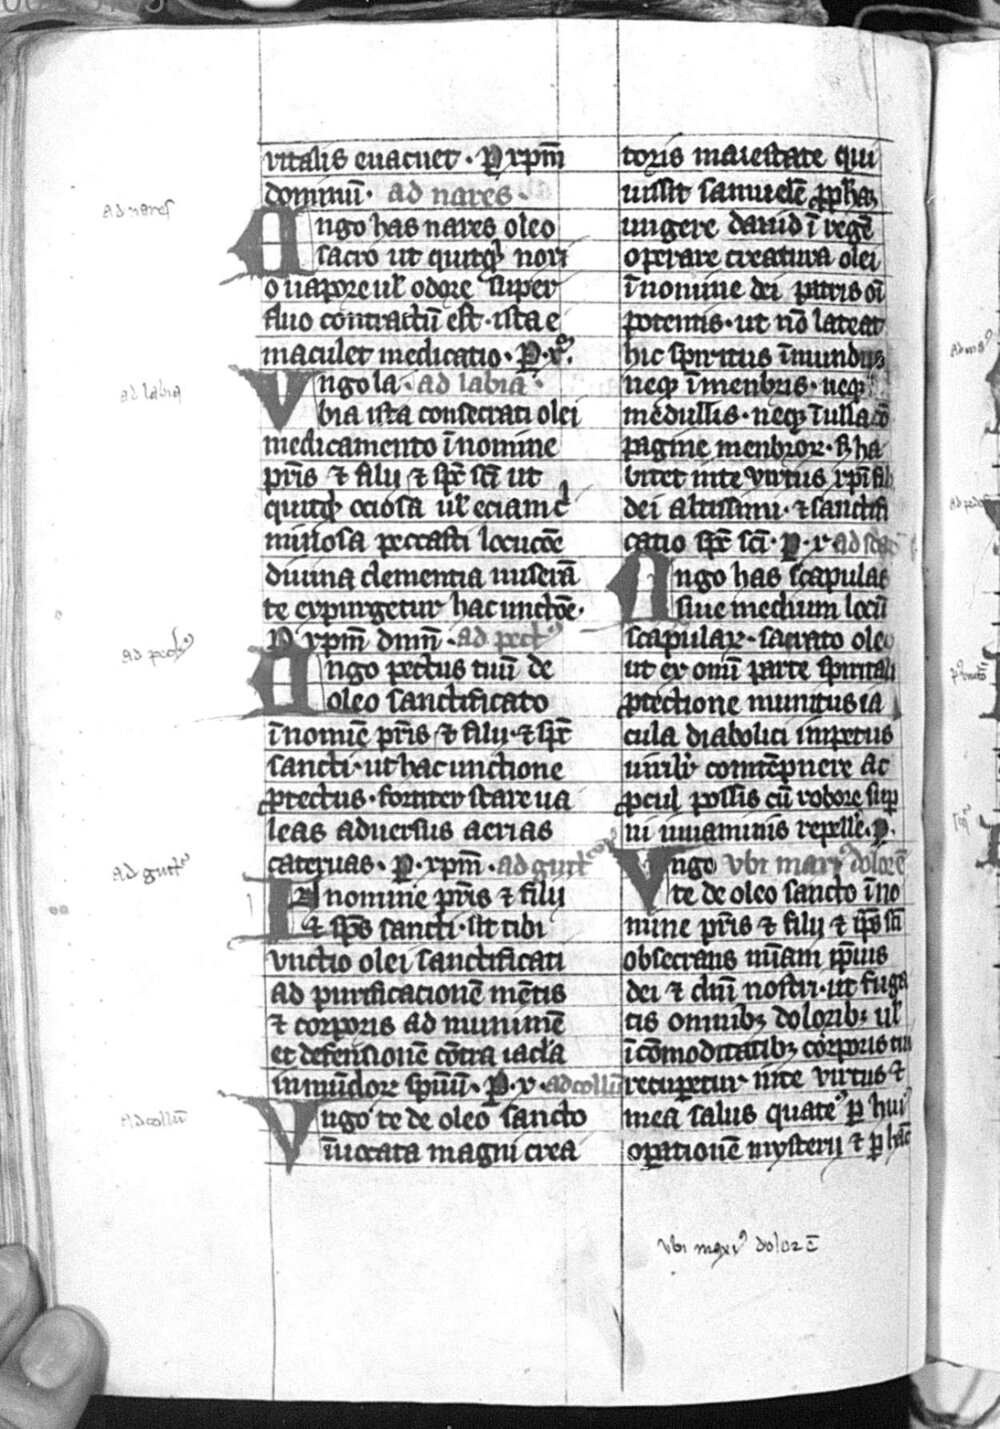 vitalis euacuet · P xpm̄
dominū · ad nares
Ungo has nares oleo
sacro ut quitqͥd noxi
o uapore ul̓ odore super
fluo contractū est · ista e
maculet medicatio · P · xͫ
Vngo la · ad labia ·
bia ista consecrati olei
medicamento ī nomine
pr̄is ⁊ filii ⁊ spc̄ sc̄i ut
quitqͥd ociosa ul̓ eciam cͥ
minosa peccasti locucōe
diuina clementia miserā
te expurgetur hac unctōe ·
P xpm̄ dnm̄ · ad pectꝰ
Ungo pectus tuū de
oleo sanctificato
ī nomīe pr̄is ⁊ filii ⁊ spc̄
sancti · ut hac unctione
ꝓtectus · fortiter stare ua
leas aduersus aerias
cateruas · P · xpm̄ · ad gutt
In nomine pr̄is ⁊ filii
⁊ sps̄ sancti · sit tibi
vnctio olei sanctificati
ad purificacionē mētis
⁊ corporis ad munimē
et defensionē cōtra iacl̓a
inmūdoꝝ spūū · P · x · ad collū
Vngo te de oleo sancto
īuocata magni crea
toris maiestate qui
iussit samuelē ꝓpħaꝫ
ungere dauid ī regē
operare creatura olei
ī nomine dei patris oī
potentis · ut nō lateat
hic spiritus īmundus
neqꝫ ī menbris · neqꝫ
medullis · neqꝫ ī ulla cō
pagine menbroꝝ · sꝫ ha
bitet in te virtus xpī fil̓
dei altissimi · ⁊ sanctifi
catio spc̄ sc̄i · P · x · ad scap
Ungo has scapulas
siue medium locū
scapulaꝝ · sacrato oleo
ut ex omī parte spiritali
ꝓtectione munitus ia
cula diabolici impetus
uiril̓r contēpnere ac
ꝓcul possis cū robore suꝑ
ni iuuaminis repell̓e · P ·
Vngo vbi maxiꝰ dolor ē
te de oleo sancto ī no
mine pr̄is ⁊ filii ⁊ sp̄s sc̄i
obsecrans mīam ip̄ius
dei ⁊ dnī nostri · ut fuga
tis omnibꝫ doloribꝫ ul̓
īcōmoditatibꝫ corporis tui
recuꝑetur in te virtus ⁊
mea salus quatēꝰ ꝑ huiꝰ
oꝑationē mysterii ⁊ ꝑ hāc
ad nares
ad labia
ad pectꝰ
ad gutt
ad collū
vbi maxiꝰ dolor ē